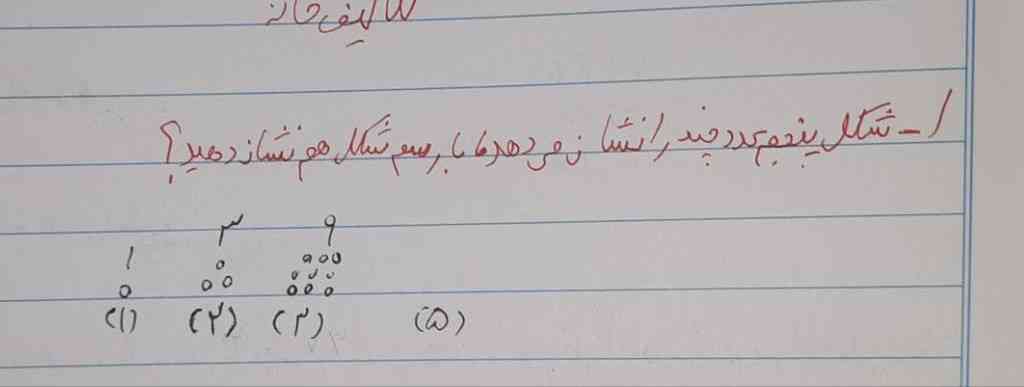 تکلیف خانه
۱ـ شکل پنجم عدد چند را نشان می دهد با رسم شکل هم نشان دهید؟
۱ ۳ ۹
(۱) (۲) (۳) (۵)